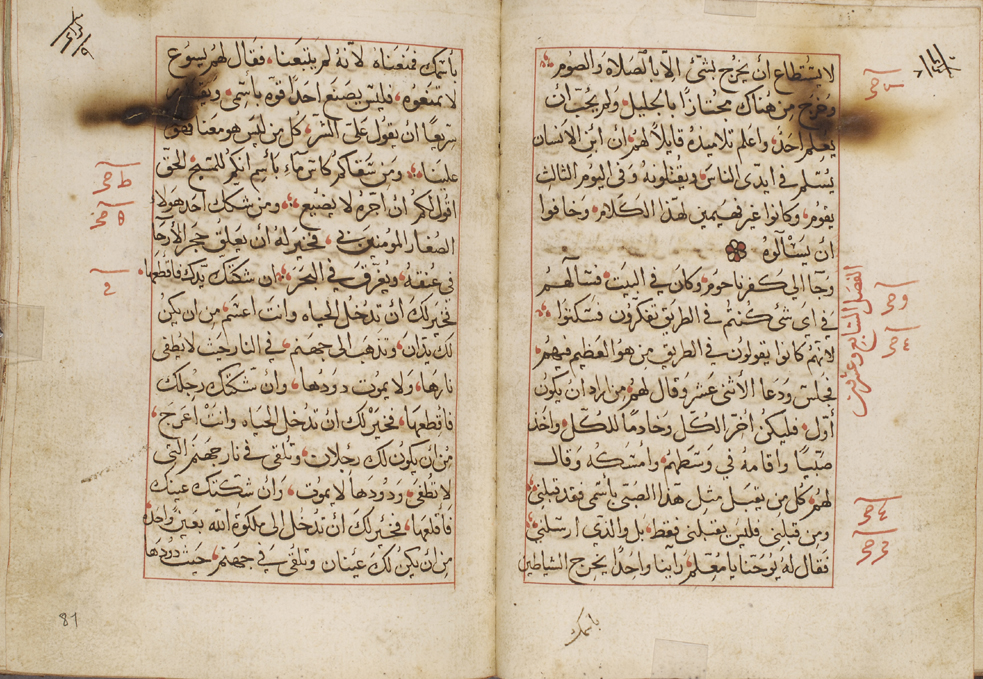 لا يستطاع ان يخرج بشئ الا بالصلاة والصوم
وخرج من هناك مجتازًا بالجليل ولم يحب ان
يعلم احد واعلم تلاميذه قايلاً لهم ان ابن الانسان
يسلم في ايدي الناس ويقتلونه وفي اليوم الثالث
يقوم وكانوا غير فهيمين لهذا الكلام وخافوا
ان يسألوه
وجا الى كفرناحوم وكان في البيت فسالهم
في اي شي كنتم في الطريق تفكرون فسكتوا
لانهم كانوا يقولون في الطريق من هو العظيم فيهم
فجلس ودعا الاثنى عشر وقال لهم من اراد ان يكون
أول فليكن أخر الكل وخادمًا للكل واخذ
صبيًا واقامه في وسطهم وامسكه وقال
لهم كل من يقبل مثل هذا الصبي باسمي فقد قبلني
ومن قبلني فليس يقبلني فقط بل والذي ارسلني
فقال له يوحنا يا معلم راينا واحدًا يخرج الشياطين
الفصل السابع وعشرين
باسمك
باسمك فمنعناه لانه لم يتبعنا فقال لهم يسوع
لا تمنعوه فليس يصنع احد قوه باسمي
سريعًا ان يقول علي الشر كل من ليس هو معنا فهو
علينا ومن سقاكم كاس ماء باسم انكم للمسيح الحق
اقول لكم ان اجره لا يضيع ومن شكك احد هولاء
الصغار المومنين بي فخير له ان يعلق حجر الرحا
في عنقه ويغرق في البحر ان شككتك يدك فاقطعها
فخير لك ان تدخل الحياه وانت اعسم من ان يكن
لك يدان وتذهب الى جهنم في النار حيث لا يطفى
نارها ولا يموت دودها وان شككتك رجلك
فاقطعها فخير لك ان تدخل الحياه وانت اعرج
من ان يكون لك رجلان وتلقى في نار جهنم التي
لا تطفى ودودها لا يموت وان شككتك عينك
فاقلعها فخير لك ان تدخل الى ملكوة الله بعين واحدة
من ان يكن لك عينان وتلقى في جهنم حيث دودها
81